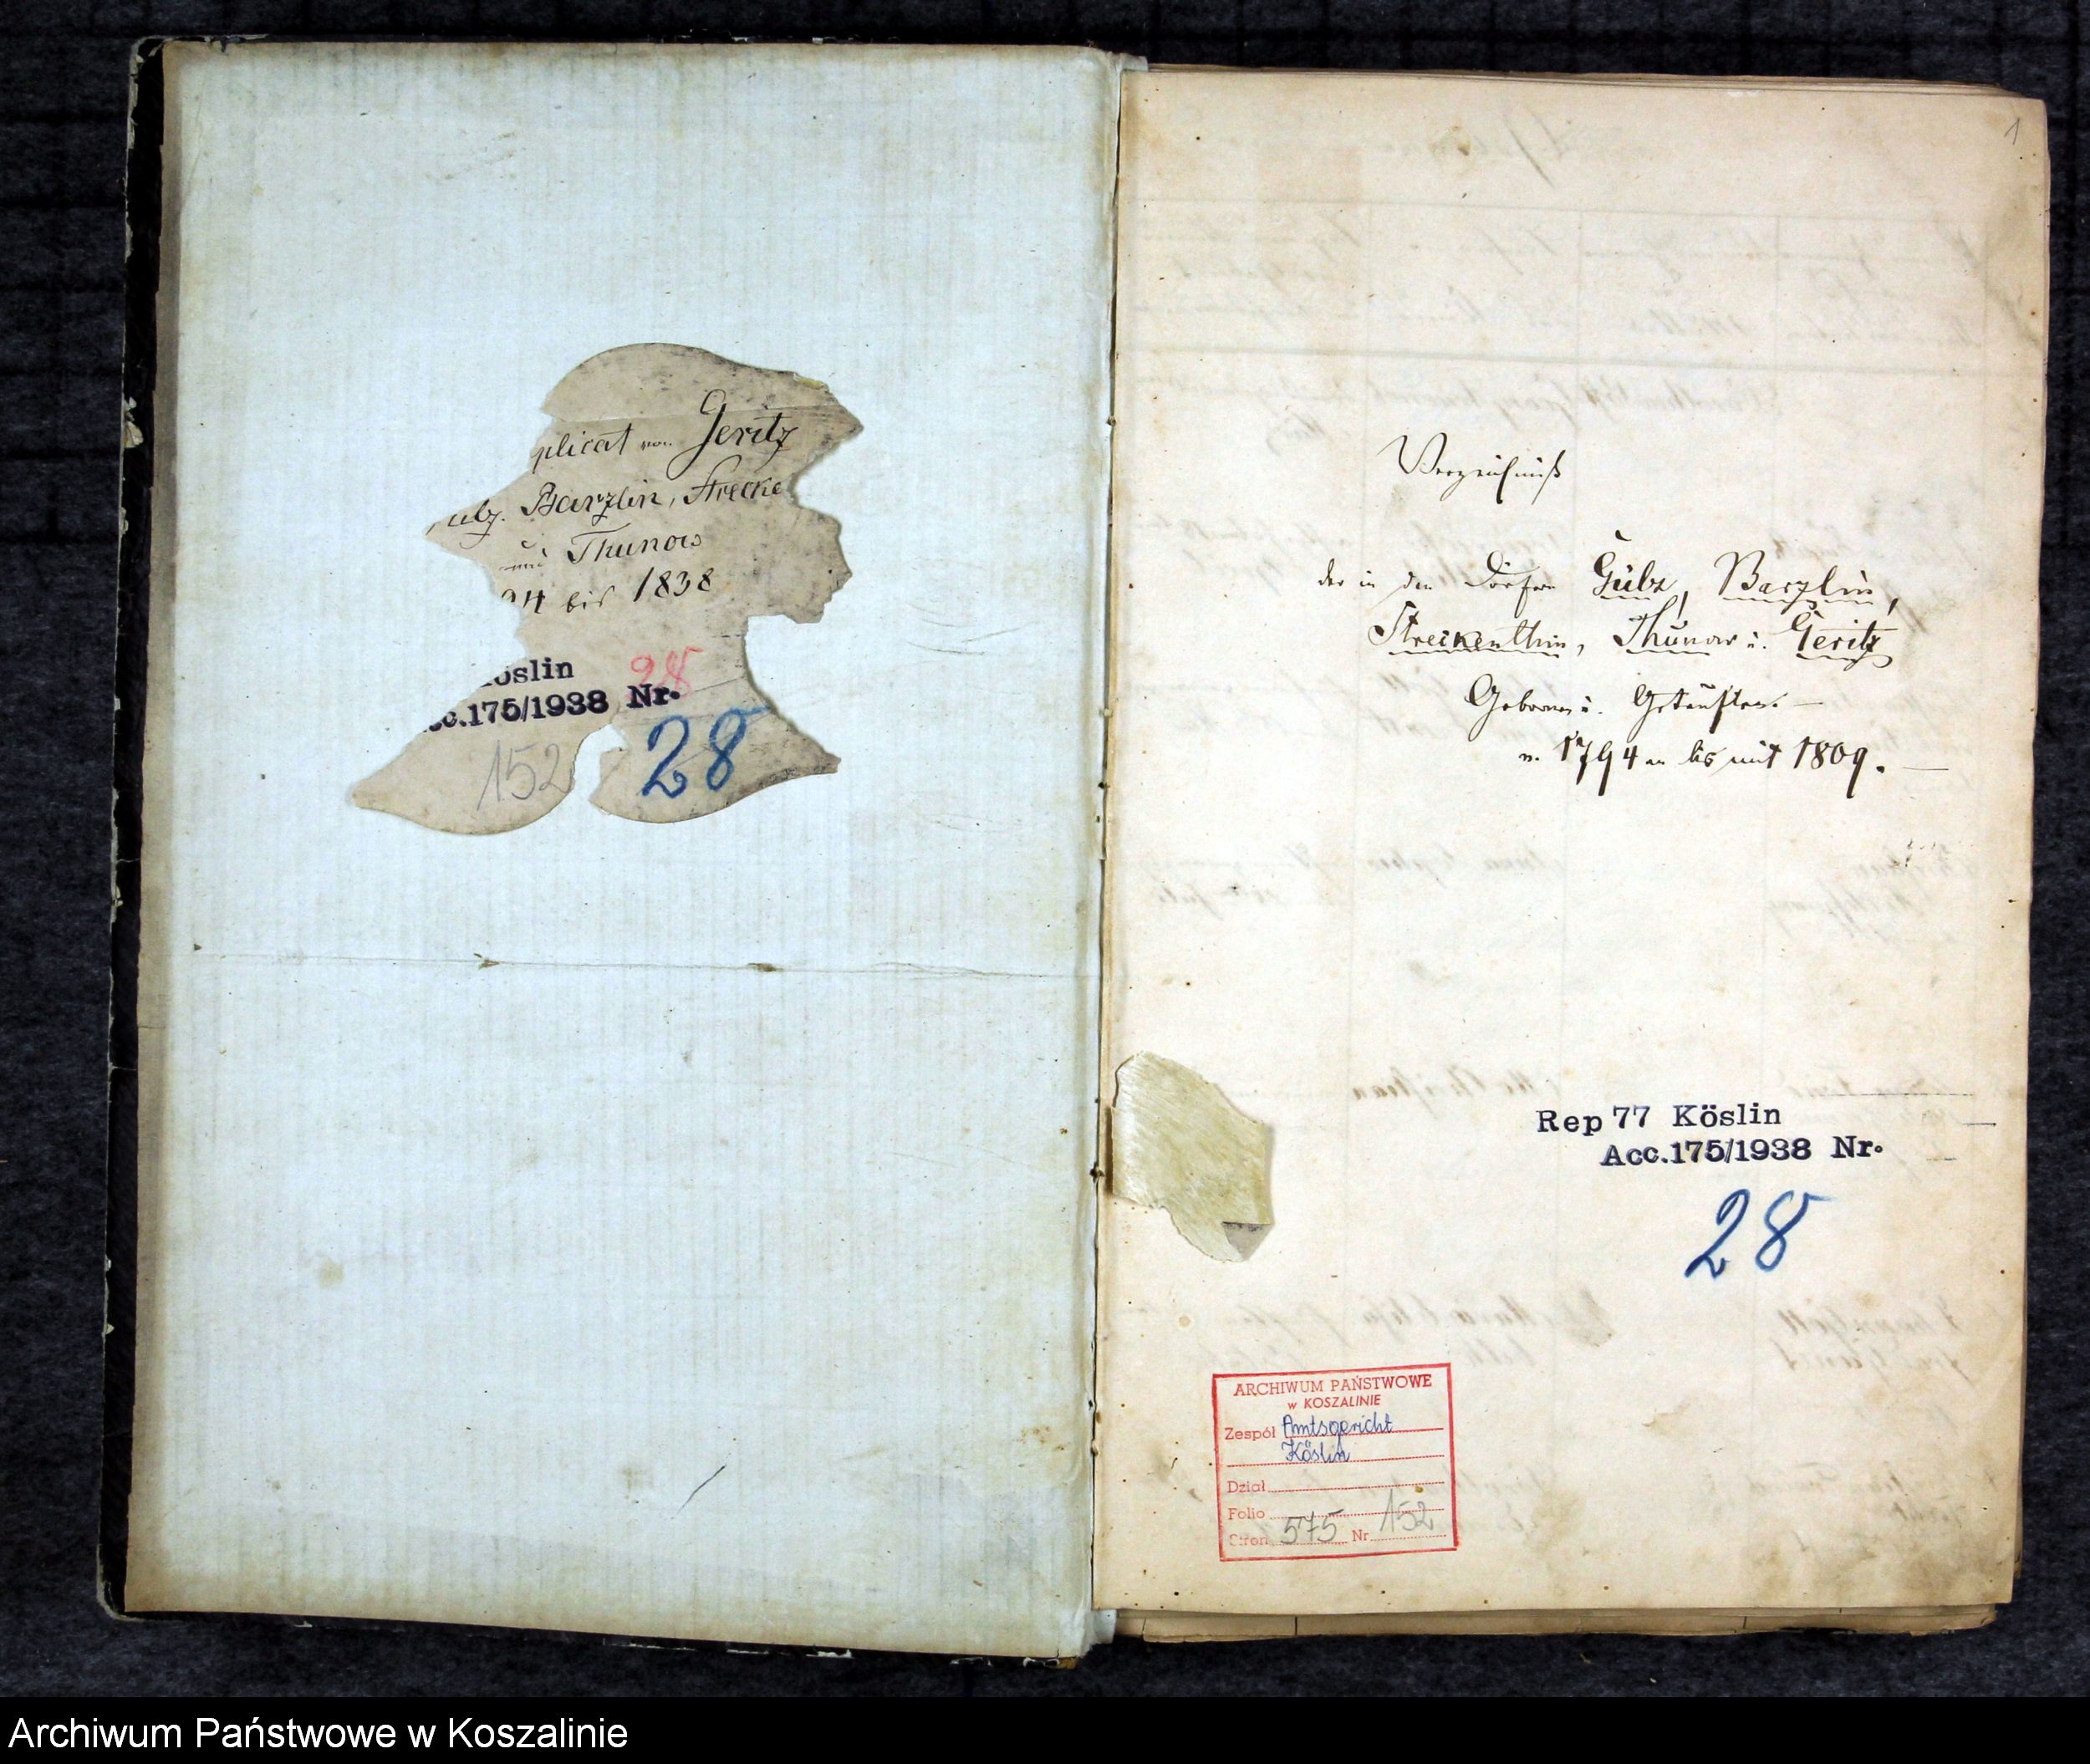 plicat von Geritz
ülz. Barzlin, Strecke
und Thunow
94 bis 1838
28
öslin
cc.175/1938 Nr.
152
28
1
Verzeichniß
der in den Dörfern Gülz, Barzlin,
Streckenthin, Thunow u. Geritz
Gebornen u. Getauften.
v. 1794 an bis mit 1809.
Rep 77 Köslin
Acc.175/1938 Nr.
28
ARCHIWUM PAŃSTWOWE
w KOSZALINIE
Zespół Amtsgericht
Köslin
Dział
Folio
Stron 575 Nr 152
Archiwum Państwowe w Koszalinie